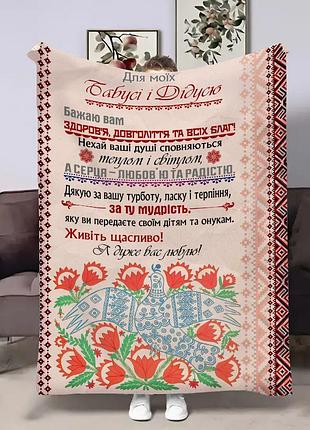 Для моїх
Бабусі і Дідусю
Бажаю вам
ЗДОРОВ'Я, ДОВГОЛІТТЯ ТА ВСІХ БЛАГ!
Нехай ваші душі сповняються
теплом і світлом,
А СЕРЦЯ – ЛЮБОВ'Ю ТА РАДІСТЮ.
Дякую за вашу турботу, ласку і терпіння,
за ту мудрість,
яку ви передаєте своїм дітям та онукам.
Живіть щасливо!
Я дуже вас люблю!